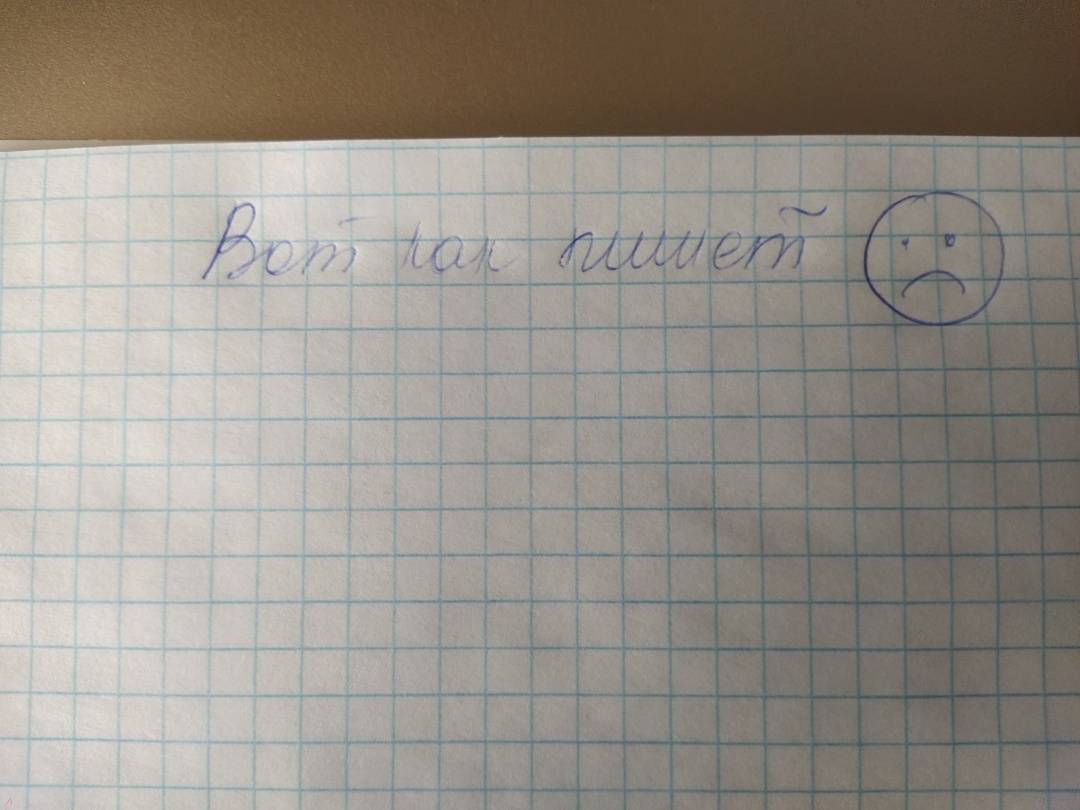 Вот как пишет